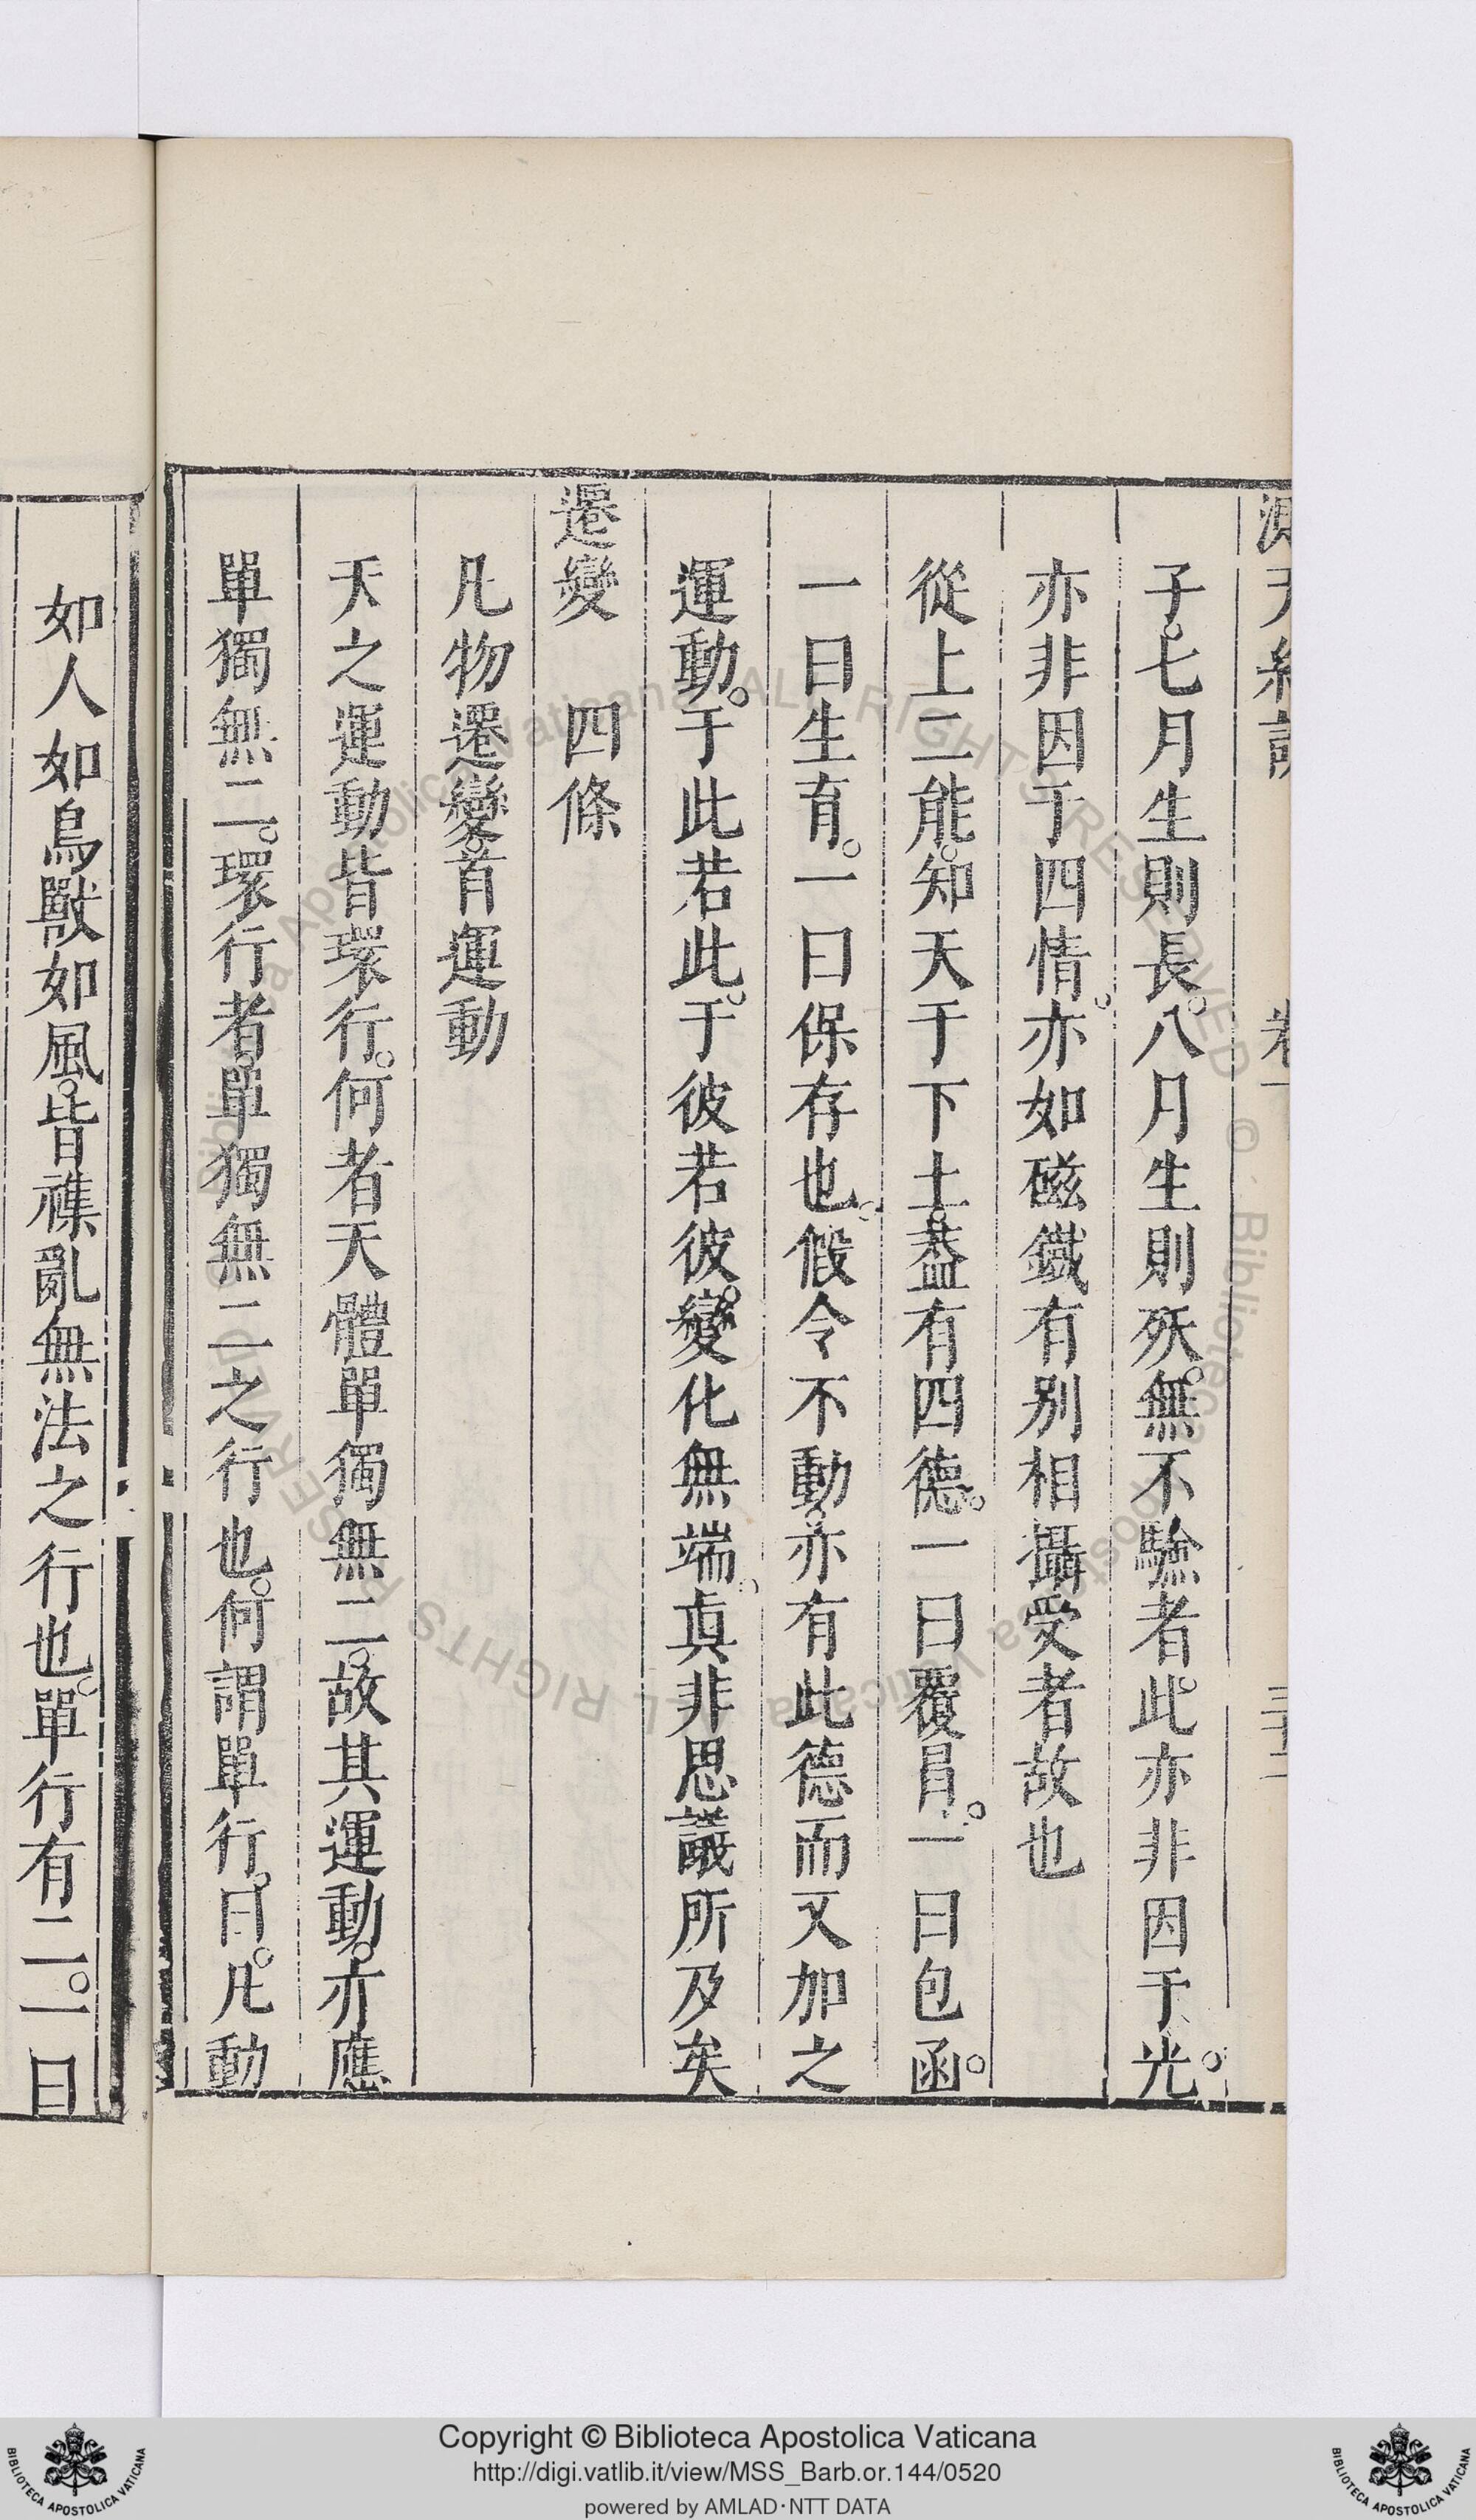 子。七月生則長。八月生則殀。無不驗者。此亦非因于光。
亦非因于四情。亦如磁鐵有別相攝受者故也
從上二能。知天于下土。葢有四德。一曰覆冒。一曰包函。
一曰生育。一曰保存也。假令不動。亦有此德而又加之
運動。于此若此。于彼若彼。變化無端。真非思議所及矣
遷變　四條
凡物遷變。首運動
天之運動皆環行。何者天體單獨無二。故其運動。亦應
單獨無二。環行者。單獨無二之行也。何謂單行。曰。凡動
如人如鳥獸如風。皆襍亂無法之行也。單行有二。一曰
Copyright © Biblioteca Apostolica Vaticana
http://digi.vatlib.it/view/MSS_Barb.or.144/0520
powered by AMLAD·NTT DATA
BIBLIOTECA APOSTOLICA VATICANA
BIBLIOTECA APOSTOLICA VATICANA